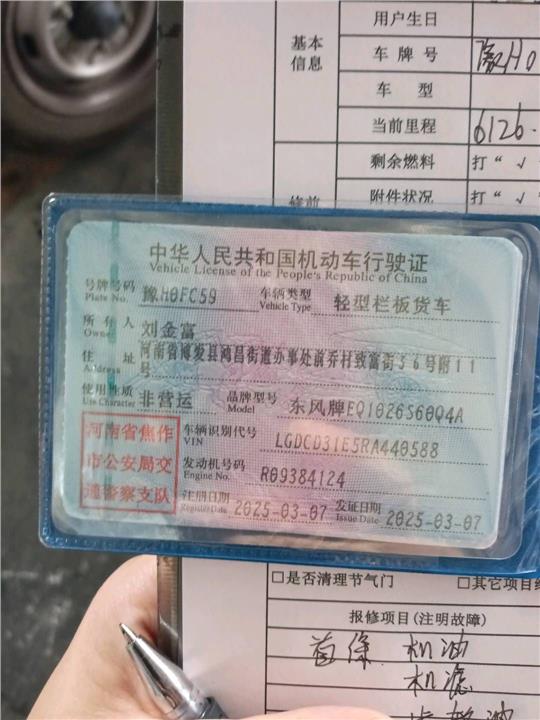 用户生日
基本
信息
车牌号
豫H0
车 型
当前里程
6126.
剩余燃料
打“√
修前
附件状况
打“√
中华人民共和国机动车行驶证
Vehicle License of the People's Republic of China
号牌号码 豫H0FC59 车辆类型 轻型栏板货车
Plate No. Vehicle Type
所有人 刘金富
Owner
住 址 河南省博爱县鸿昌街道办事处前乔村致富街36号附11
Address 号
使用性质 非营运 品牌型号 东风牌EQ1026S60Q4A
Use Character Model
河南省焦作
市公安局交
通警察支队
车辆识别代号 LGDCD31E5RA440588
VIN
发动机号码 R09384124
Engine No.
注册日期 2025-03-07 发证日期 2025-03-07
Register Date Issue Date
□是否清理节气门 □其它项目
报修项目(注明故障)
首保 机油
机滤